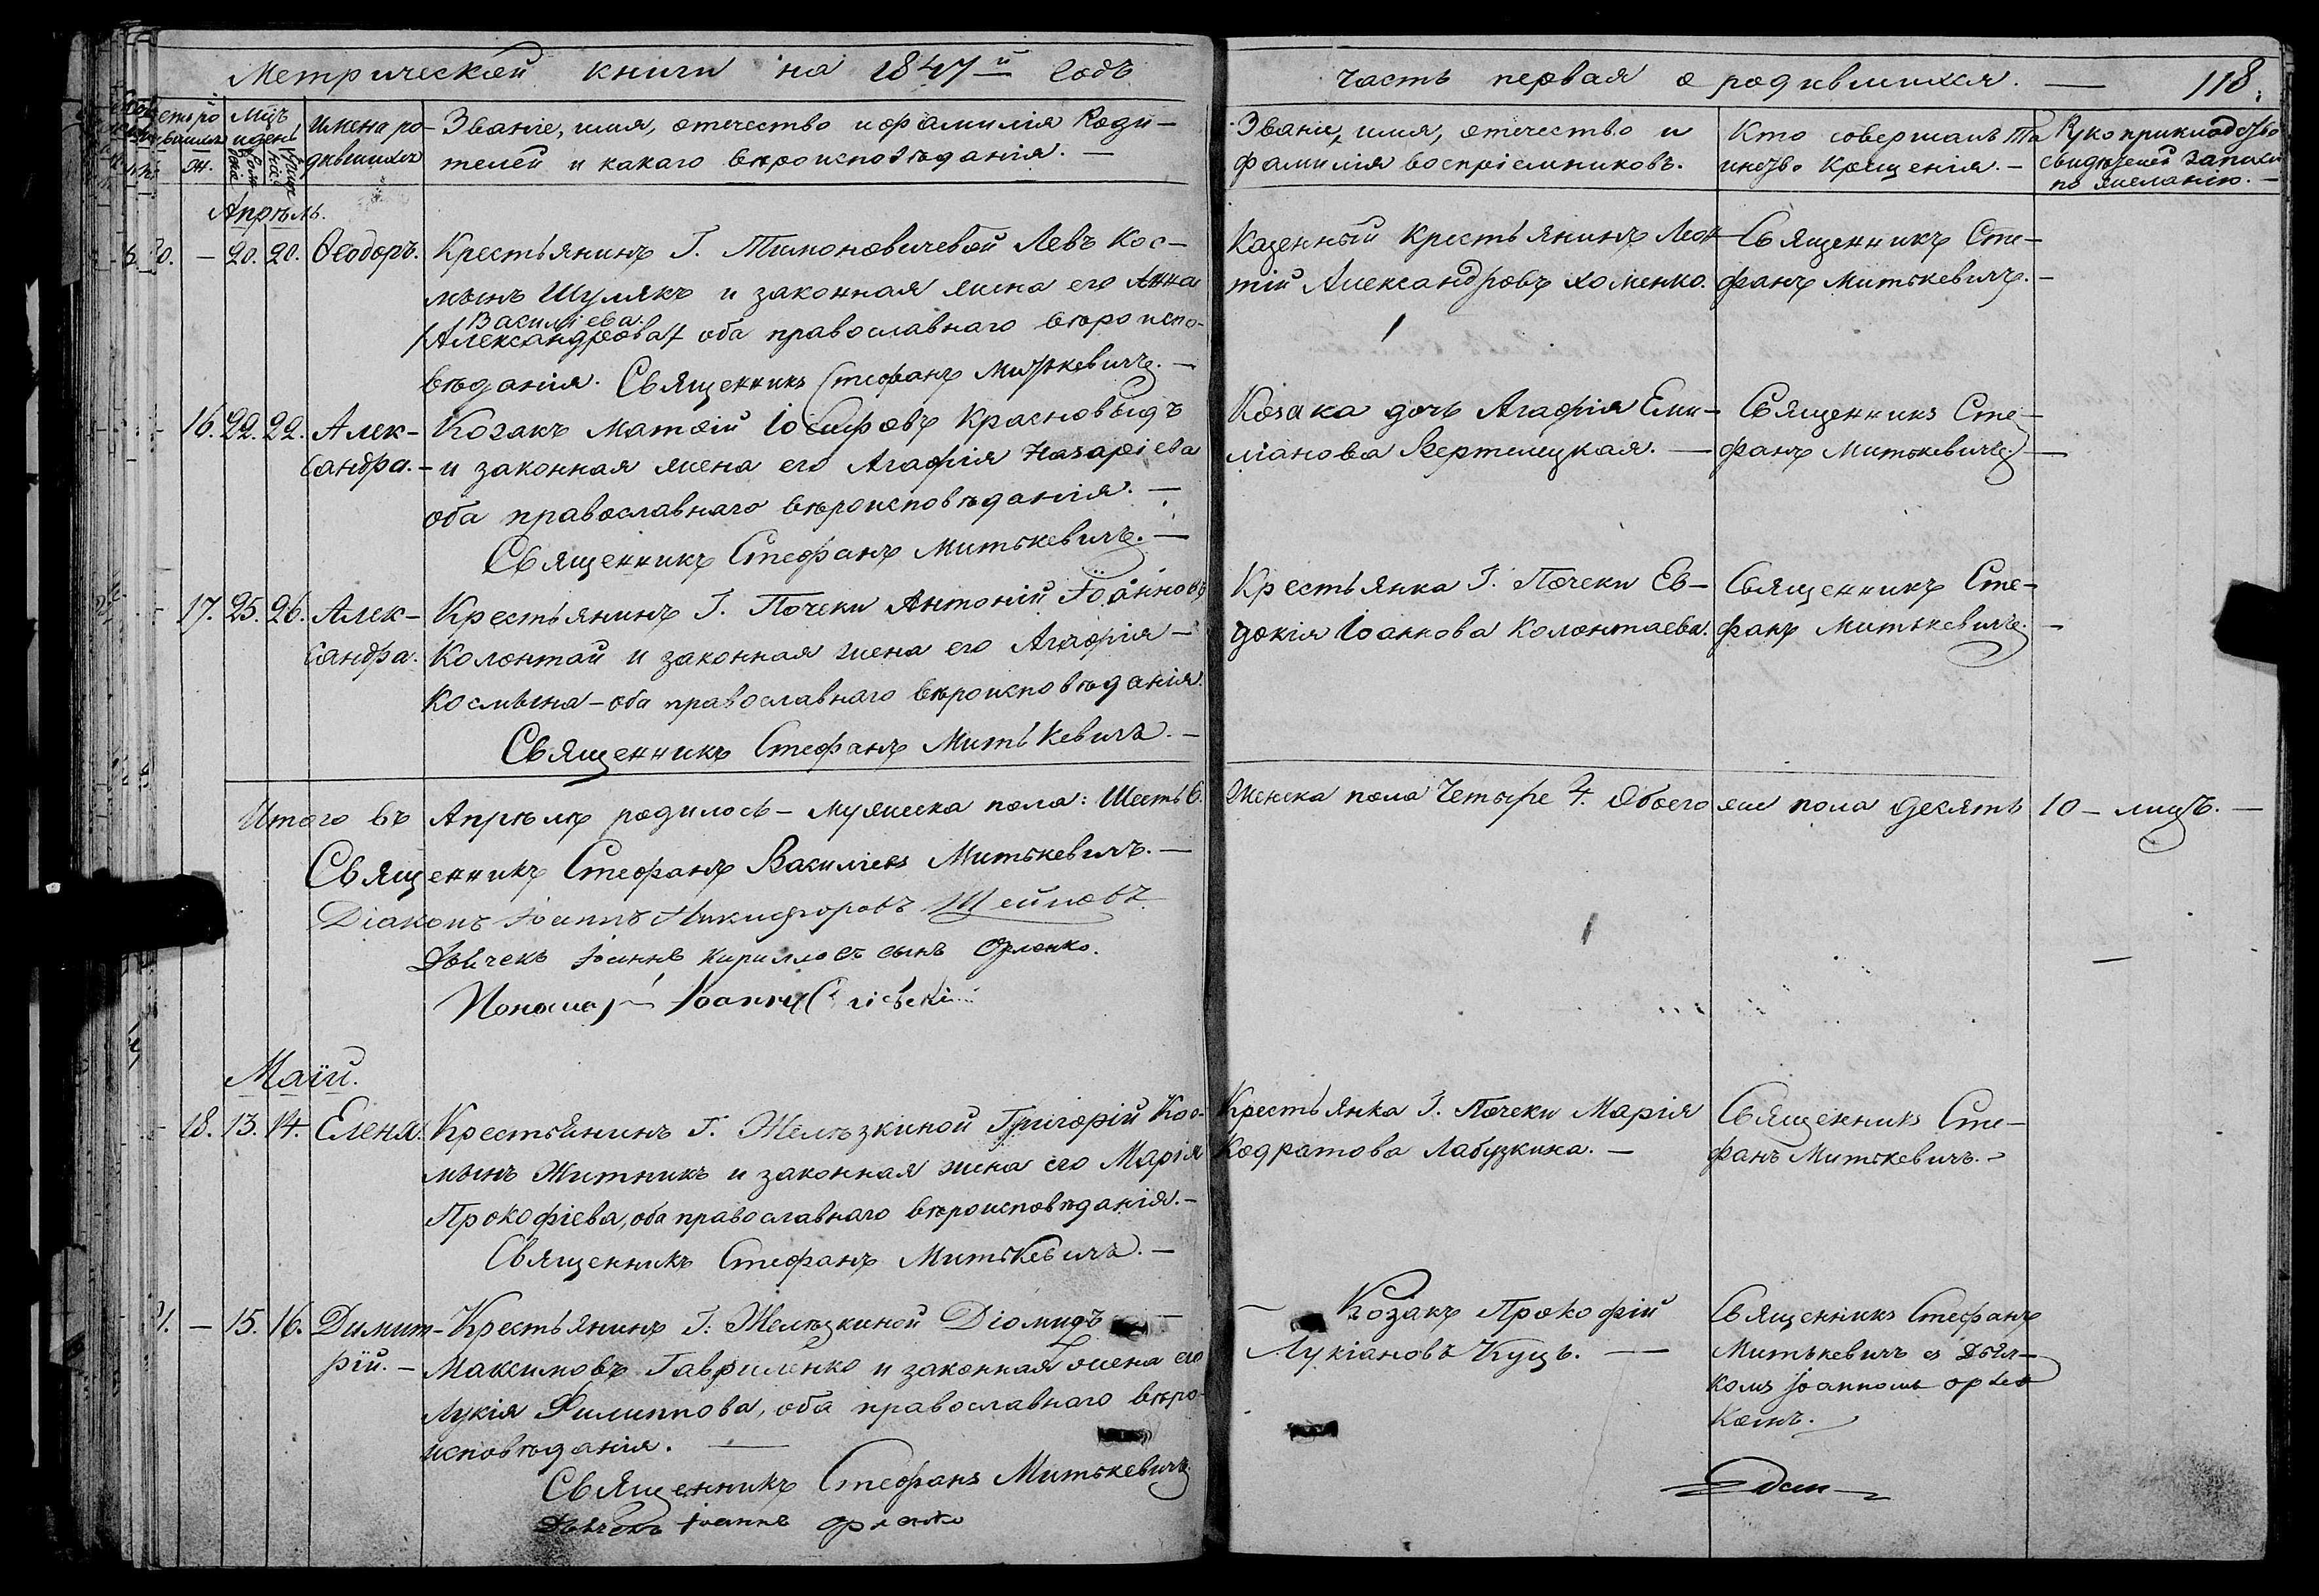 Метрической книги на 1847й годъ
часть первая о родившихся. — 118.
Мцъ и день
Имена родившихся
Званіе, имя, отечество и фамилія Роди-
телей и какаго вѣроисповѣданія. —
Званіе, имя, отечество и
фамилія воспріемниковъ.
Кто совершалъ Та
инство Крещенія. —
Рукоприкладство
свидѣтелей записи
по желанію. —
Апрѣль.
— 20. 20. Ѳеодоръ.
Крестьянинъ Г. Тимоновичевой Левъ Кос-
мынъ Шулякъ и законная жена его Анна
Василіева
/Александрова/ оба православнаго вѣроиспо-
вѣданія. Священникъ Стефанъ Митькевичъ. —
Казенный крестьянинъ Леон-
тій Александровъ Хоменко.
Священникъ Сте-
фанъ Митькевичъ. —
16. 22. 22. Алек-
сандра. —
Козакъ Матѳій Іосифовъ Красновыдъ
и законная жена его Агафія Назаріева
оба православнаго вѣроисповѣданія. —
Священникъ Стефанъ Митькевичъ. —
Козака дочь Агафія Еми-
ліанова Вертелецкая. —
Священникъ Сте-
фанъ Митькевичъ. —
17. 25. 26. Алек-
сандра.
Крестьянинъ Г. Почеки Антоній Іоанновъ
Колонтай и законная жена его Агафія —
Космына — оба православнаго вѣроисповѣданія.
Священникъ Стефанъ Митькевичъ. —
Крестьянка Г. Почеки Ев-
докія Іоаннова Колонтаева.
Священникъ Сте-
фанъ Митькевичъ. —
Итого въ Апрѣлѣ родилось — мужеска пола: Шесть 6. Женска пола Четыре 4. Обоего же пола Десять 10 — лицъ. —
Священникъ Стефанъ Василіевъ Митькевичъ. —
Діаконъ Іоаннъ Никифоровъ
Дьячекъ Іоаннъ Кирилловъ сынъ Орленко.
Пономарь Іоаннъ
Маій.
18. 13. 14. Елена.
Крестьянинъ Г. Желѣзкиной Григорій Кос-
мынъ Житникъ и законная жена его Марія
Прокофіева, оба православнаго вѣроисповѣданія. —
Священникъ Стефанъ Митькевичъ. —
Крестьянка Г. Почеки Марія
Кодратова Лабузкина. —
Священникъ Сте-
фанъ Митькевичъ. —
— 15. 16. Димит-
рій. —
Крестьянинъ Г. Желѣзкиной Діомидъ
Максимовъ Гавриленко и законная жена его
Лукія Филиппова, оба православнаго вѣро-
исповѣданія. —
Священникъ Стефанъ Митькевичъ
Дьячекъ Іоаннъ Орленко
Козакъ Прокофій
Лукіановъ Куцъ. —
Священникъ Стефанъ
Митькевичъ съ Дьяч-
комъ Іоанномъ Орлен
комъ.